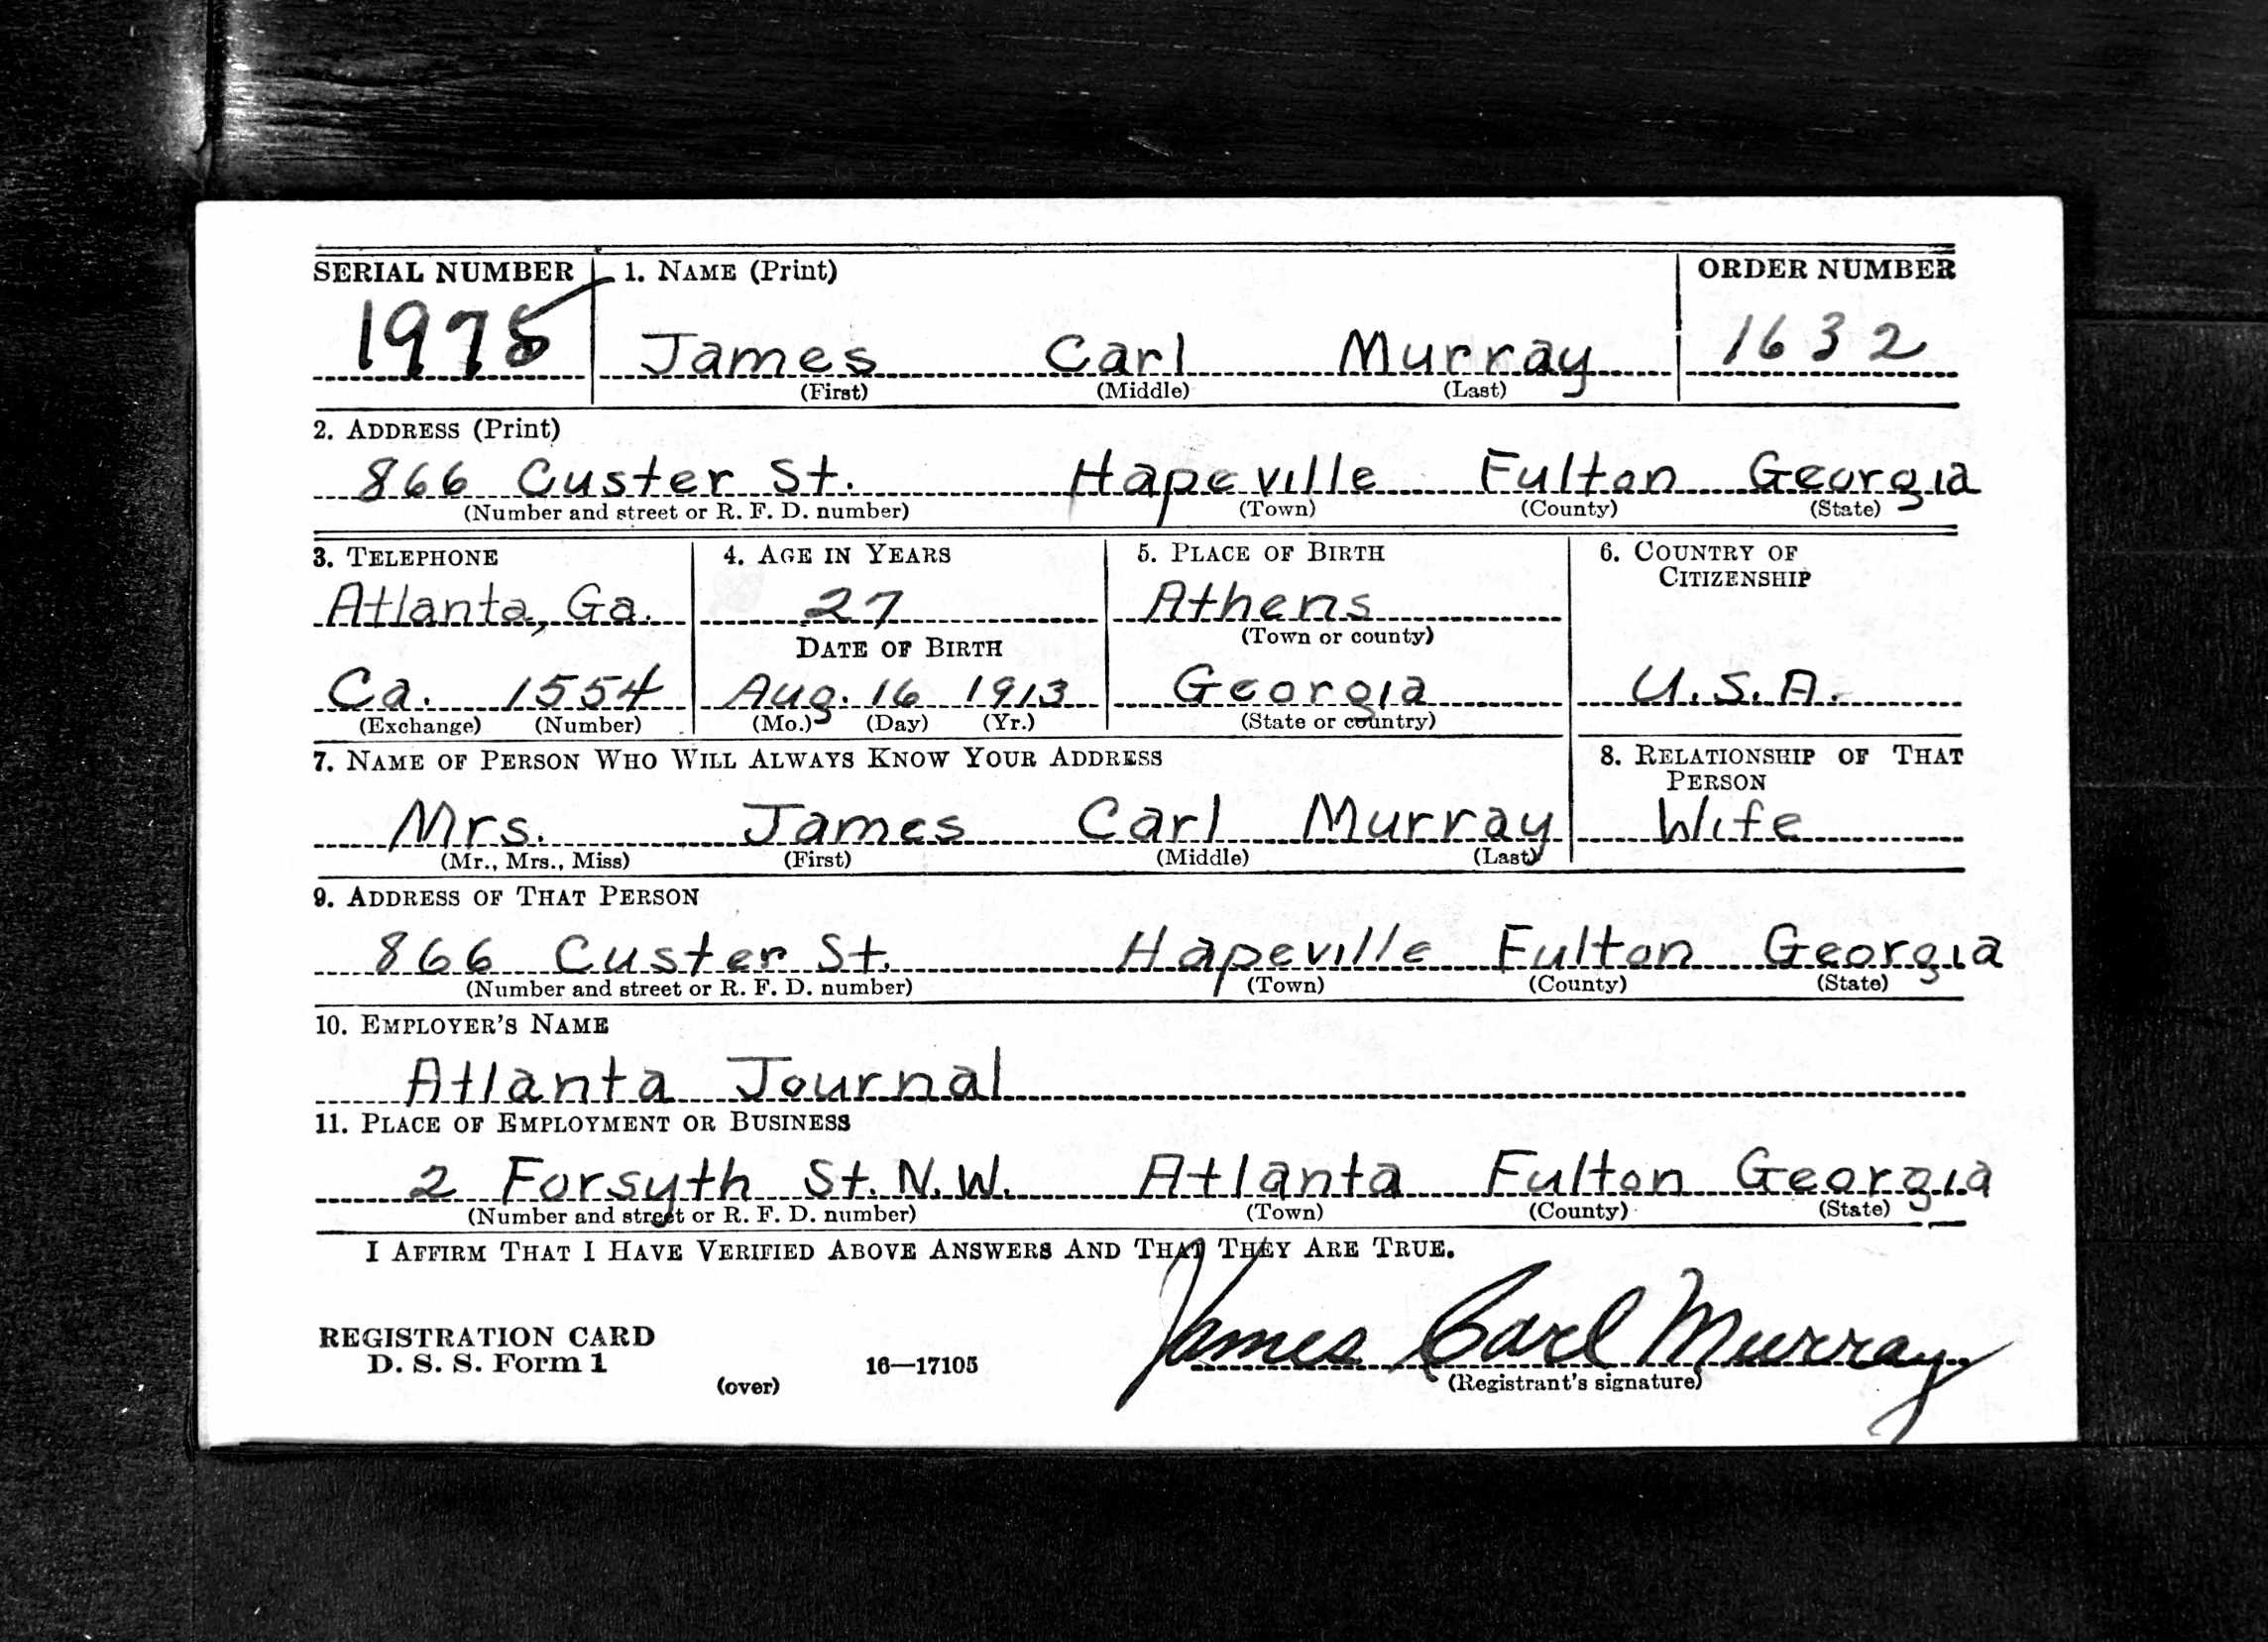 SERIAL NUMBER 1. NAME (Print) ORDER NUMBER
1975 James Carl Murray 1632
(First) (Middle) (Last)
2. ADDRESS (Print)
866 Custer St. Hapeville Fulton Georgia
(Number and street or R. F. D. number) (Town) (County) (State)
3. TELEPHONE 4. AGE IN YEARS 5. PLACE OF BIRTH 6. COUNTRY OF
CITIZENSHIP
Atlanta, Ga. 27 Athens
DATE OF BIRTH (Town or county)
Ca. 1554 Aug. 16 1913 Georgia U.S.A.
(Exchange) (Number) (Mo.) (Day) (Yr.) (State or country)
7. NAME OF PERSON WHO WILL ALWAYS KNOW YOUR ADDRESS 8. RELATIONSHIP OF THAT
PERSON
Mrs. James Carl Murray Wife
(Mr., Mrs., Miss) (First) (Middle) (Last)
9. ADDRESS OF THAT PERSON
866 Custer St. Hapeville Fulton Georgia
(Number and street or R. F. D. number) (Town) (County) (State)
10. EMPLOYER'S NAME
Atlanta Journal
11. PLACE OF EMPLOYMENT OR BUSINESS
2 Forsyth St. N.W. Atlanta Fulton Georgia
(Number and street or R. F. D. number) (Town) (County) (State)
I AFFIRM THAT I HAVE VERIFIED ABOVE ANSWERS AND THAT THEY ARE TRUE.
REGISTRATION CARD James Carl Murray
D. S. S. Form 1 16—17105 (Registrant's signature)
(over)